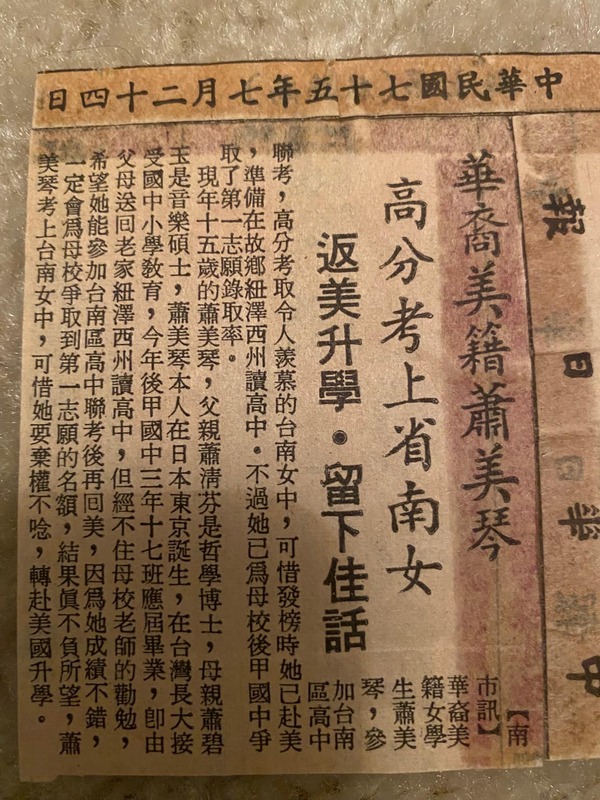 中華民國七十五年七月二十四日
報
日
華
中
華裔美籍蕭美琴
高分考上省南女
返美升學•留下佳話
【南
市訊】
華裔美
籍女學
生蕭美
琴，參
加台南
區高中
聯考，高分考取令人羨慕的台南女中，可惜發榜時她已赴美
，準備在故鄉紐澤西州讀高中。不過她已爲母校後甲國中爭
取了第一志願錄取率。
現年十五歲的蕭美琴，父親蕭清芬是哲學博士，母親蕭碧
玉是音樂碩士，蕭美琴本人在日本東京誕生，在台灣長大接
受國中小學敎育，今年後甲國中三年十七班應屆畢業，卽由
父母送回老家紐澤西州讀高中，但經不住母校老師的勸勉，
希望她能參加台南區高中聯考後再回美，因爲她成績不錯，
一定會爲母校爭取到第一志願的名額，結果眞不負所望，蕭
美琴考上台南女中，可惜她要棄權不唸，轉赴美國升學。